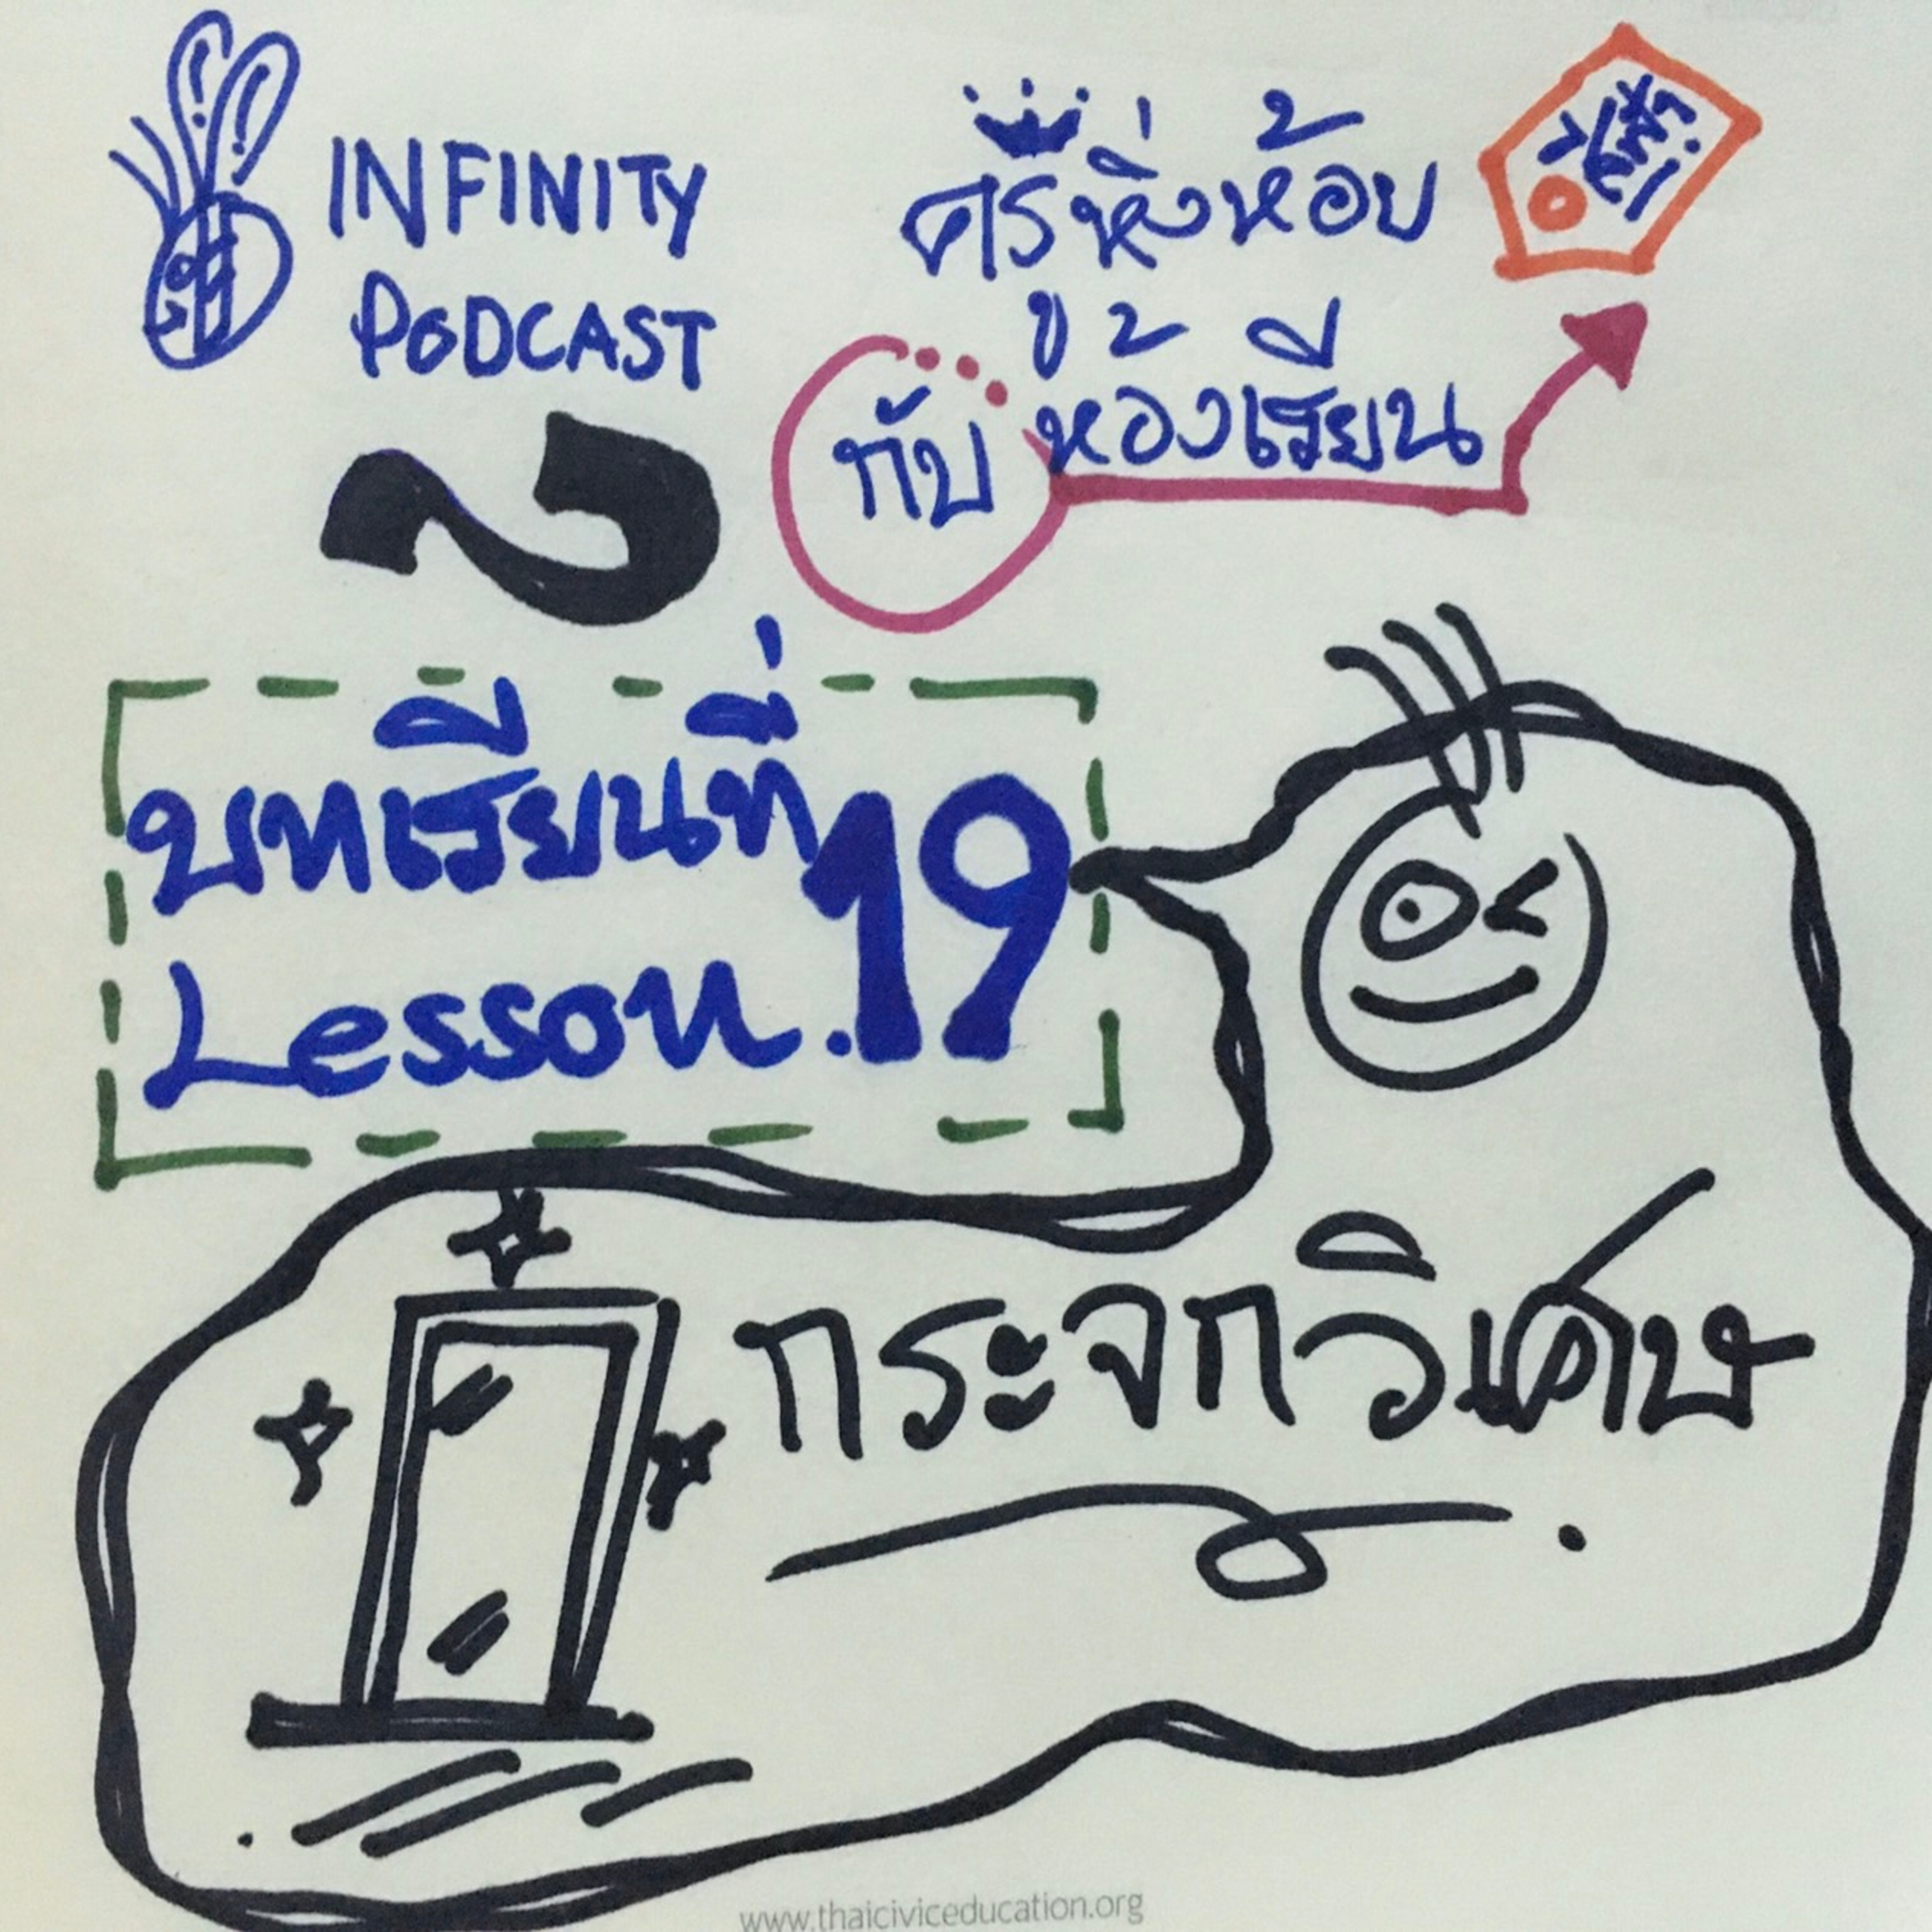 INFINITY
PODCAST
ศรีหิ่งห้อย
กับ
ห้องเรียน
บทเรียนที่ 19
Lesson.
กระจกวิเศษ
www.thaiciviceducation.org